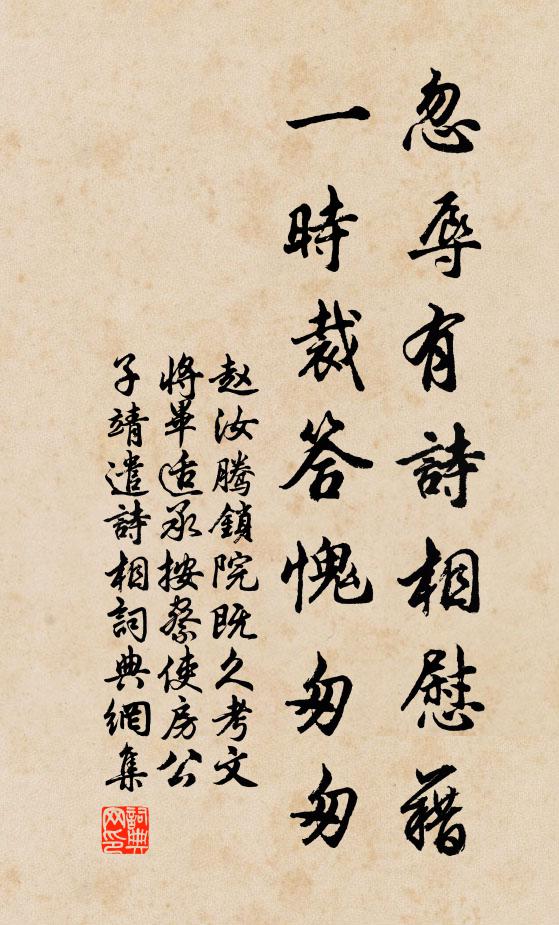 忽辱有詩相慰藉
一時裁答愧匆匆
赵汝腾鎖院既久考文
將畢适承按察使房公
子靖遣詩相詞典網集
詞典网印